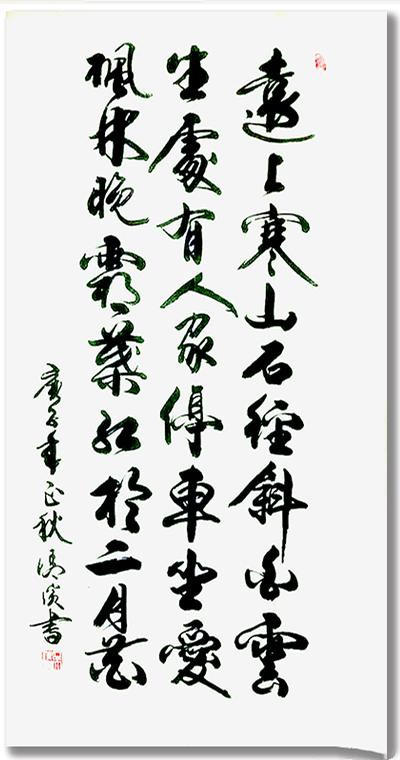 遠上寒山石徑斜白雲
生處有人家停車坐愛
楓林晚霜葉紅於二月花
庚子年正秋書